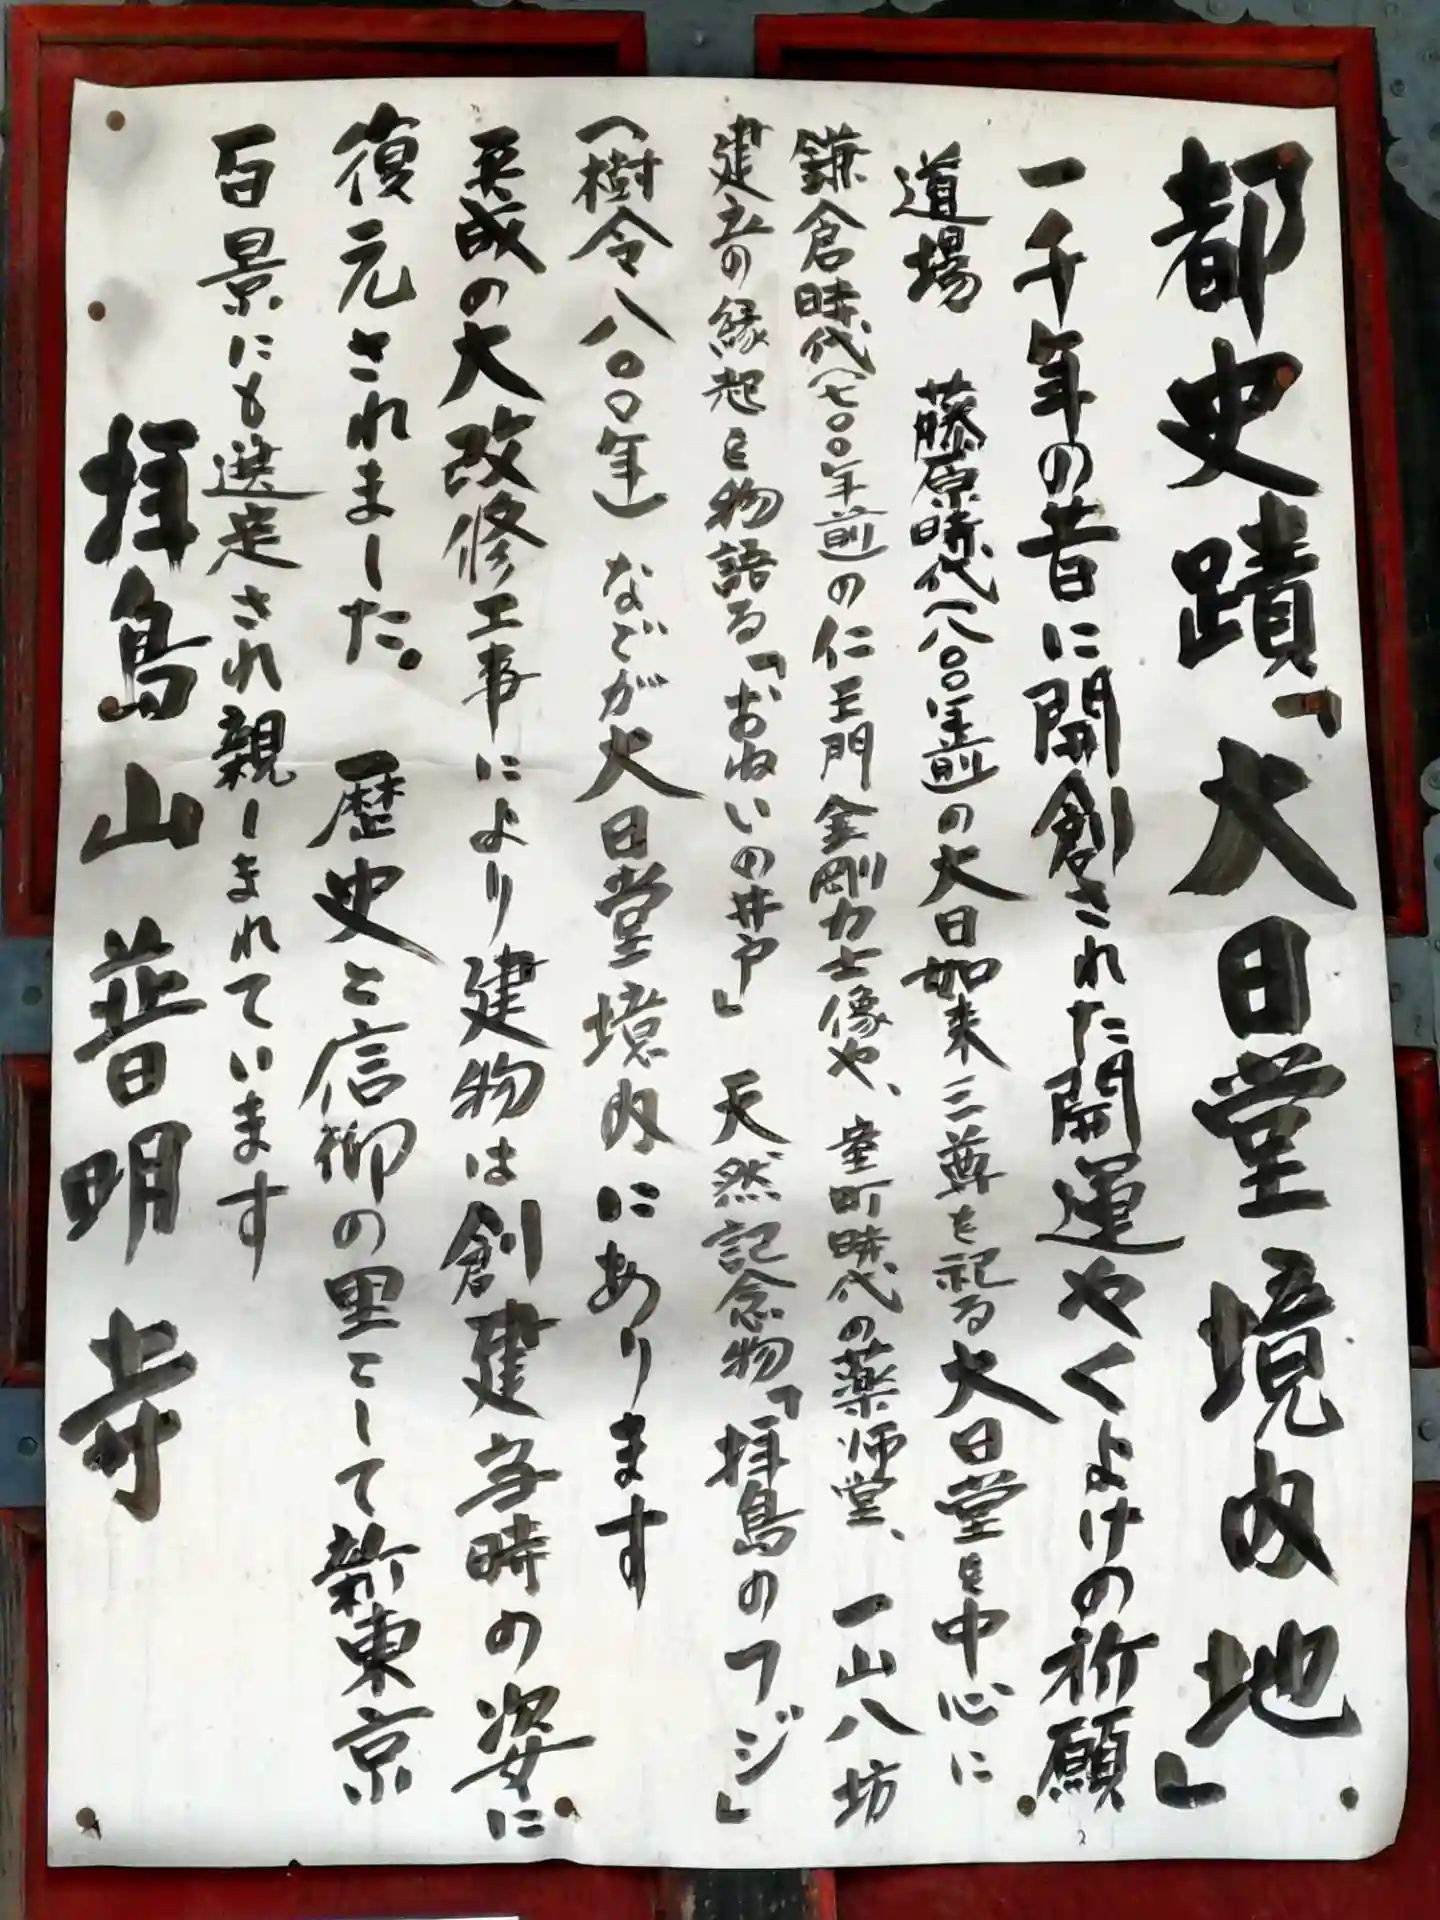 都史蹟「大日堂境内地」
一千年の昔に開創された開運やくよけの祈願
道場 藤原時代(八〇〇年前)の大日如来三尊を祀る大日堂を中心に
鎌倉時代(七〇〇年前)の仁王門金剛力士像や、室町時代の薬師堂、一山八坊
建立の縁起を物語る「おねいの井戸」 天然記念物「拝島のフジ」
(樹令八〇〇年) などが大日堂境内にあります
平成の大改修工事により建物は創建当時の姿に
復元されました。 歴史と信仰の里として新東京
百景にも選定され親しまれています
拝島山 普明寺